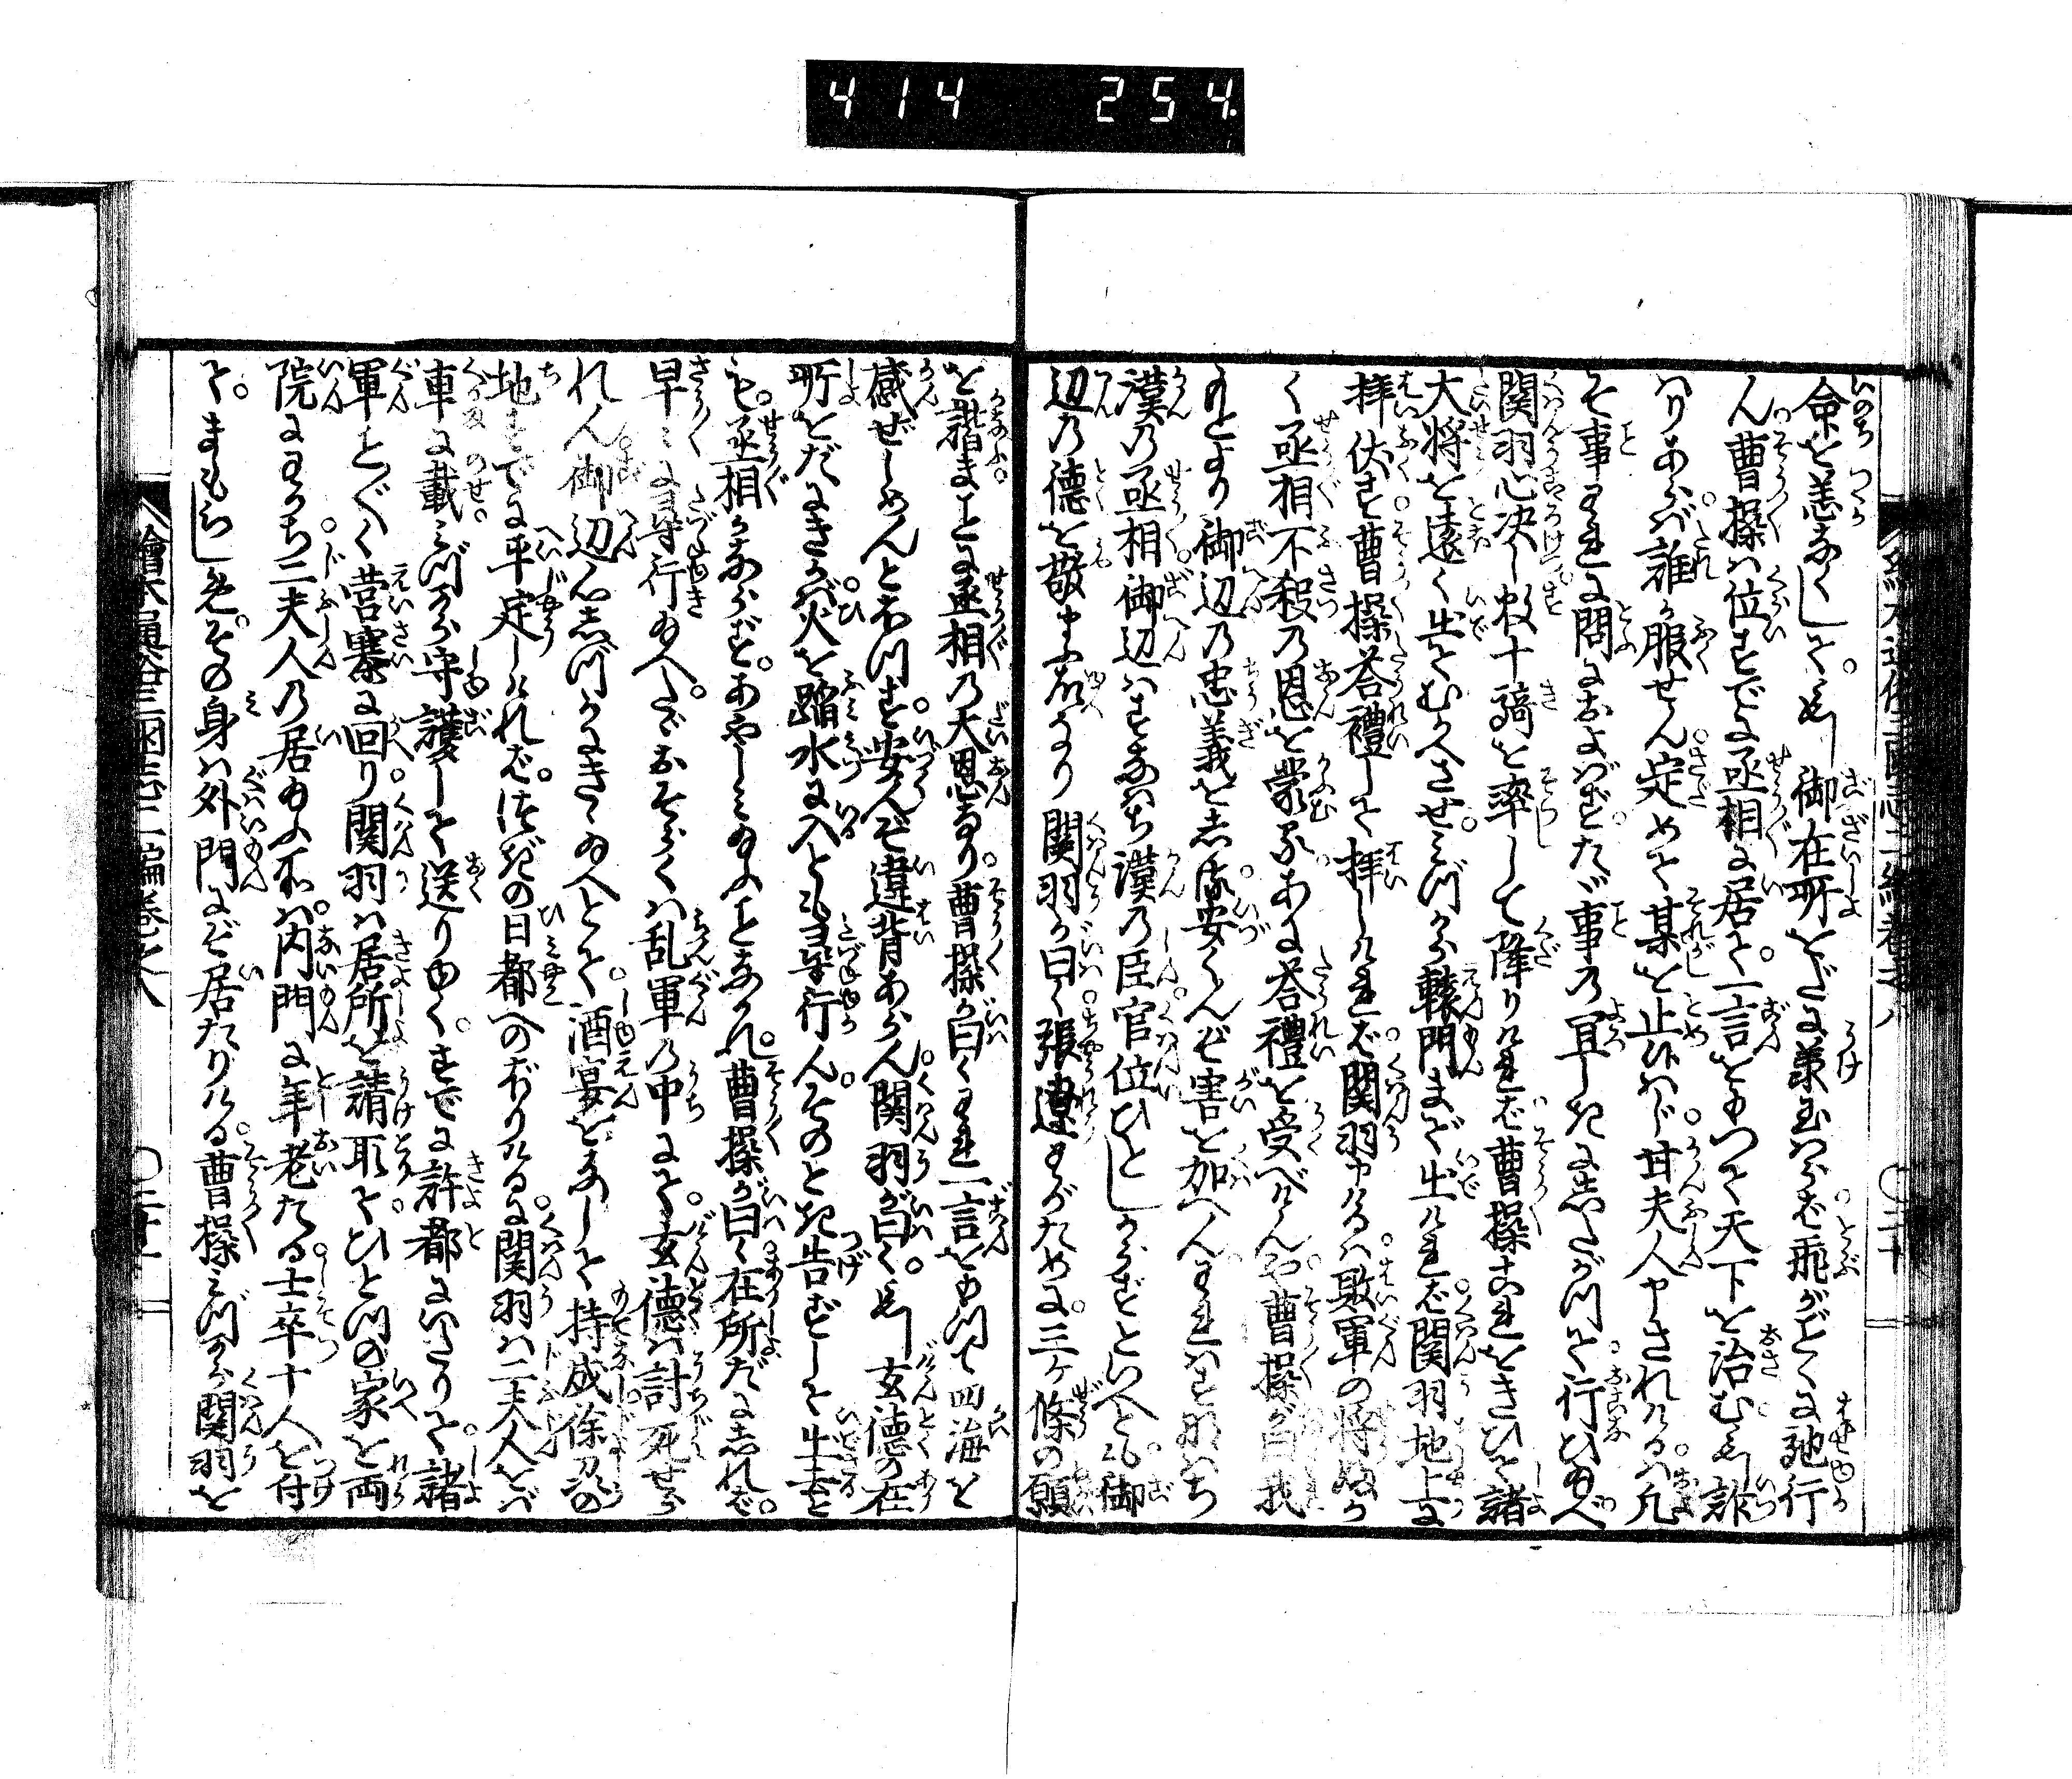 414 254
命を恙なくして。もし御在所をだに承玉はらば飛がごとくに馳行
ん曹操は位すでに丞相に居て。一言をもつて天下を治む。もし詐
りあらば誰か服せん定めて某を止玉はじ甘夫人申されけるは凡
そ事われに問におよばずたゞ事の宜しきにしたがつて行ひ玉へ
関羽心決し数十騎を率して降りければ曹操これをきひて諸
大将を遠く出てむかへさせ。みづから轅門まで出ければ関羽地上に
拝伏す曹操荅禮して拝しければ関羽申けるは敗軍の将ぬか
く丞相不殺の恩を蒙るあに荅禮を受べけんや曹操が曰我
もとより御辺の忠義をしる安くんぞ害を加へんわれはすなはち
漢の丞相御辺はすなはち漢の臣官位ひとしからずといへとも御
辺の徳を敬申ゆへなり関羽が曰く張遼わがために。三ヶ條の願
を諧まことに丞相の大恩なり曹操が曰くわれ一言をもつて四海を
感ぜしめんとおもつす安んぞ違背あらん関羽が曰く。もし玄徳の在
所をだにきかば火を蹈水に入とも尋行ん。そのとき告ずして出去と
も。丞相かならず。あやしみ玉ふことなかれ。曹操が曰く在所だにしれば。
早々に尋行玉へ。たゞおそらくは乱軍の中にて。玄徳は討死せら
れん御辺心しづかにきゝ玉へとて。酒宴をなして持成徐州の
地すでに平定しければ。次の日都へのぼりけるに関羽は二夫人をば
車に載。みづから守護して送りゆく。すでに許都にいたりて諸
軍とく〴〵営寨に回り関羽は居所を請取て。ひとつの家を両
院にわかち二夫人の居玉ふ所は内門に年老たる士卒十人を付
て。まもらしむ。その身は外門にぞ居たりける。曹操みづから関羽を
繪本通俗三國志二編巻之八